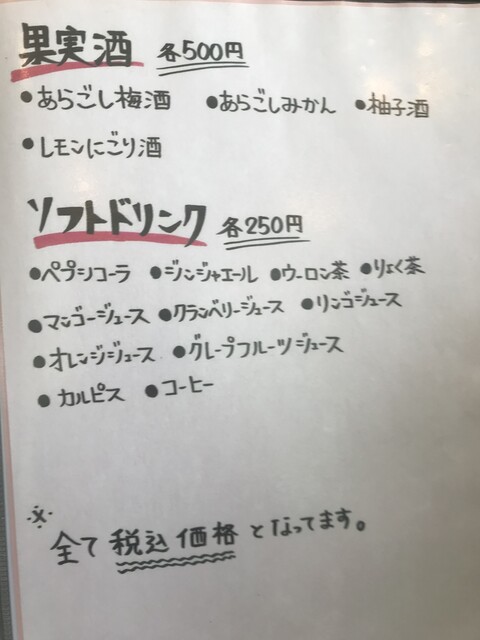 果実酒 各500円
●あらごし梅酒 ●あらごしみかん ●柚子酒
●レモンにごり酒
ソフトドリンク 各250円
●ペプシコーラ ●ジンジャエール ●ウーロン茶 ●りょく茶
●マンゴージュース ●クランベリージュース ●リンゴジュース
●オレンジジュース ●グレープフルーツジュース
●カルピス ●コーヒー
※
全て税込価格となってます。